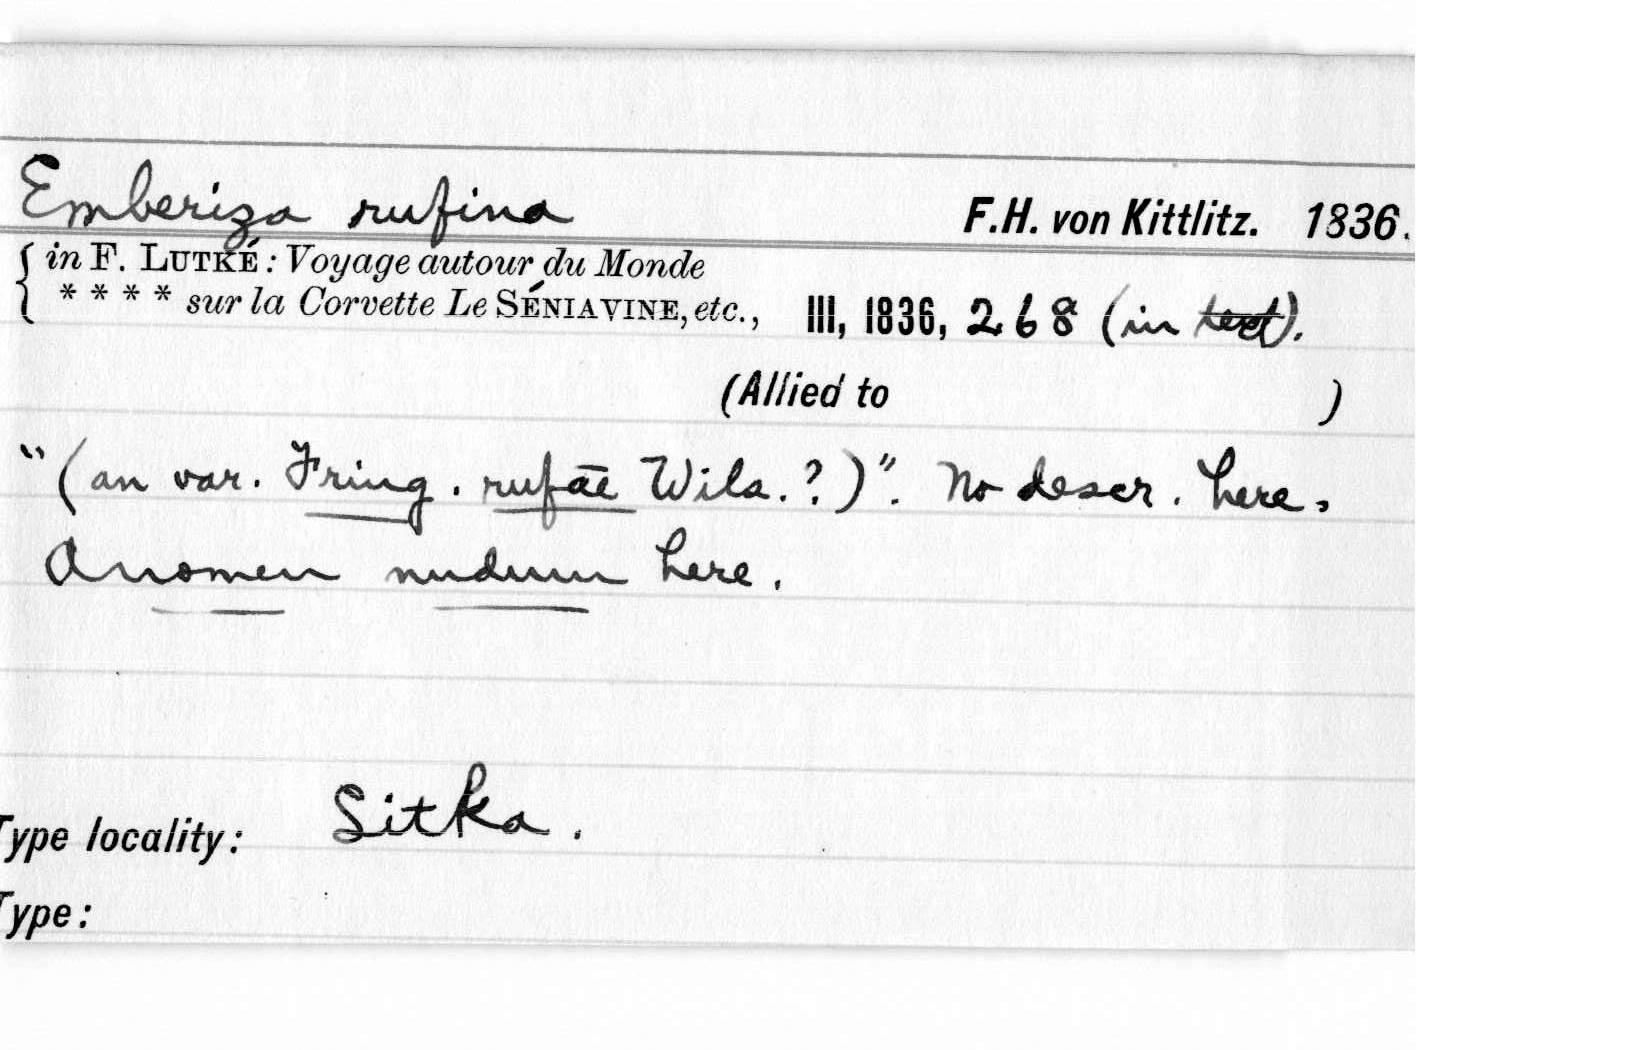 Emberiza rufina F.H. von Kittlitz. 1836.
in F. LUTKÉ: Voyage autour du Monde
* * * * sur la Corvette Le SÉNIAVINE, etc., III, 1836, 268 (in text).
(Allied to )
"(an var. Fring. rufae Wils.?)". No descr. here,
A nomen nudum here.
Type locality: Sitka.
Type: